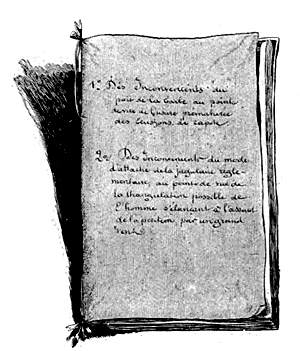 1º Des Inconvenients du
port de la barbe au point
de l'usure prématurée
des cordons de capote
2º Des inconvenients du mode
d'attache de la jugulaire régle-
mentaire au point de vue de
la strangulation possible de
l'homme s'élançant à l'assaut
de la position par un grand
vent.